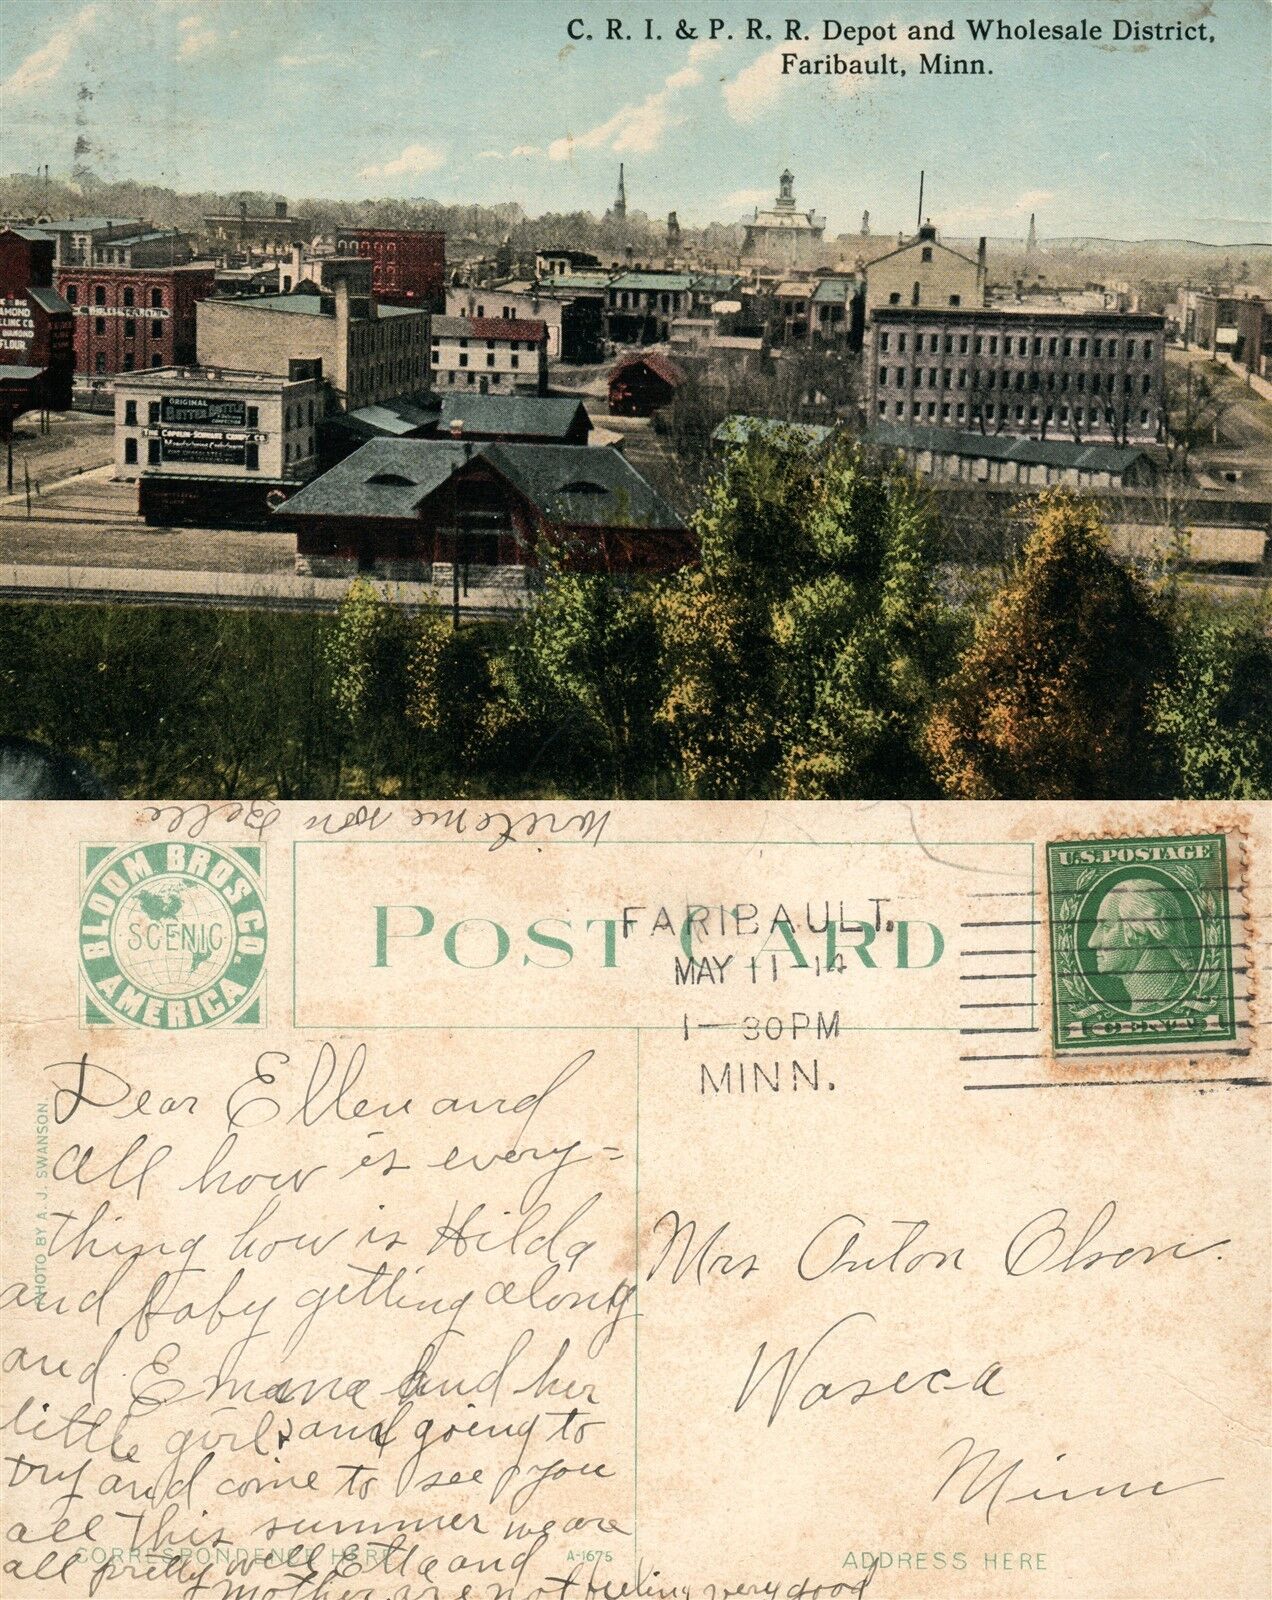 C. R. I. & P. R. R. Depot and Wholesale District,
Faribault, Minn.
BIG
AMOND
LLING CO.
DIAMOND
FLOUR.
ORIGINAL
BUTTER BOTTLE
write me soon Belle
BLOOM BROS CO.
SCENIC
AMERICA
POST CARD
FARIBAULT.
MAY 11-14
1-30PM
MINN.
U.S. POSTAGE
1 CENT 1
PHOTO BY A. J. SWANSON.
Dear Ellen and
all how is every=
thing how is Hilda
and baby getting along
and Emma and her
little girl, and going to
try and come to see you
all this summer we are
all pretty well Etta and
mother are not feeling very good
CORRESPONDENCE HERE
A-1675
Mrs Anton Olson.
Waseca
Minn
ADDRESS HERE